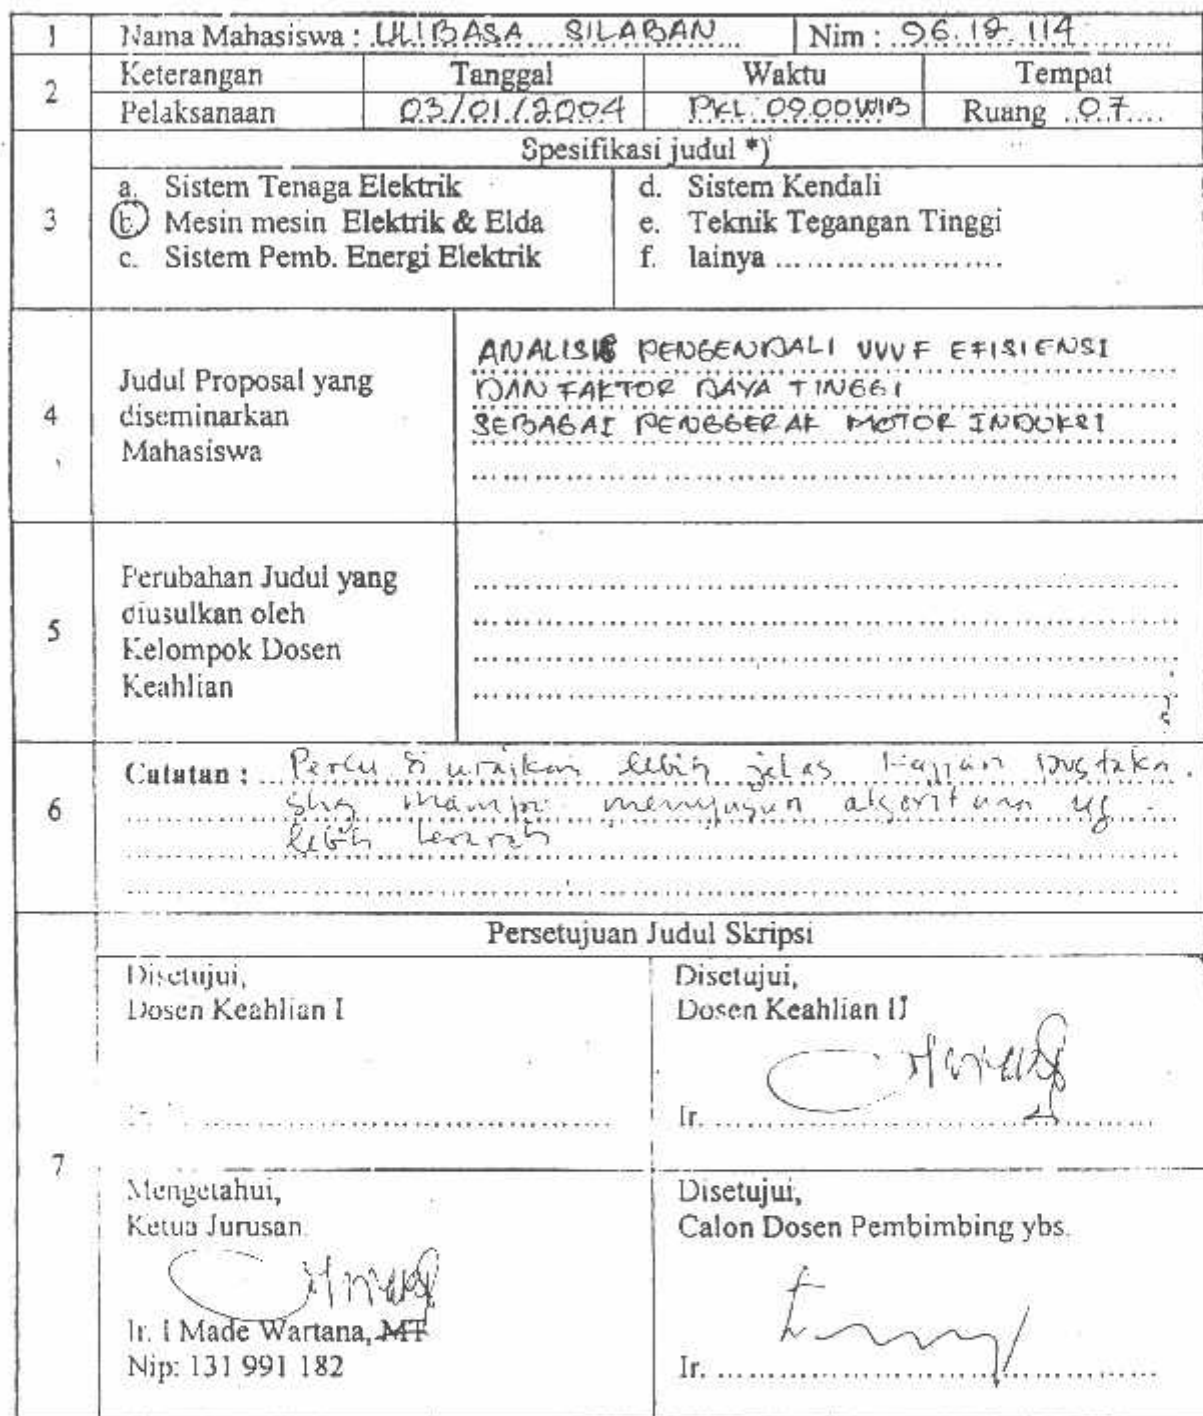 1 Nama Mahasiswa : ULIBASA SILABAN Nim : 96.12.114
2 Keterangan Tanggal Waktu Tempat
Pelaksanaan 03/01/2004 PKL. 09.00 WIB Ruang 07
Spesifikasi judul *)
3
a. Sistem Tenaga Elektrik
b. Mesin mesin Elektrik & Elda
c. Sistem Pemb. Energi Elektrik
d. Sistem Kendali
e. Teknik Tegangan Tinggi
f. lainya ........................
4
Judul Proposal yang
diseminarkan
Mahasiswa
ANALISIS PENGENDALI VVVF EFISIENSI
DAN FAKTOR DAYA TINGGI
SEBAGAI PENGGERAK MOTOR INDUKSI
5
Perubahan Judul yang
diusulkan oleh
Kelompok Dosen
Keahlian
6
Catatan : Perlu diuraikan lebih jelas kajian pustaka
shg mampu menyusun algoritma yg
lebih terarah
Persetujuan Judul Skripsi
7
Disetujui,
Dosen Keahlian I
Disetujui,
Dosen Keahlian II
Ir. ........................
Mengetahui,
Ketua Jurusan.
Ir. I Made Wartana, MT
Nip: 131 991 182
Disetujui,
Calon Dosen Pembimbing ybs.
Ir. ........................